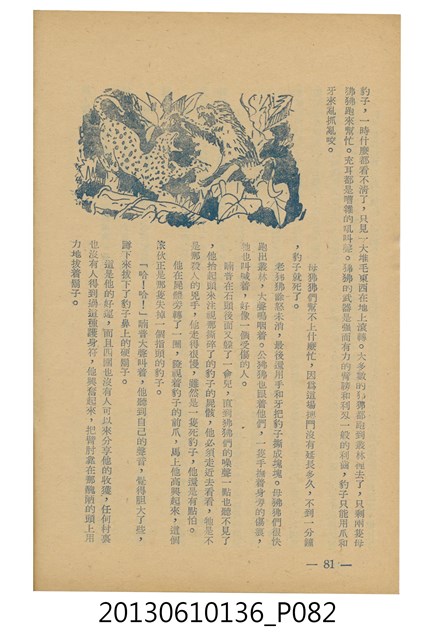 豹子，一時什麼都看不清了，只見一大堆毛東西在地上滾轉。大多數的狒狒都跑到叢林裡去了，只剩兩隻母
狒狒跑來幫忙。充耳都是嘈雜的吼叫聲。狒狒的武器是強而有力的臂膀和利刃一般的利齒，豹子只能用爪和
牙來亂抓亂咬。
母狒狒們幫不上什麼忙，因爲這場搏鬥沒有延長多久，不到一分鐘
，豹子就死了。
老狒狒餘怒未消，最後還用手和牙把豹子撕成塊塊。母狒狒們很快
跑出叢林，大聲嗚咽着。公狒狒也跟着他們，一隻手撫着身旁的傷痕，
牠也叫喊着，好像一個受傷的人。
喃音在石頭後面又停了一會兒，直到狒狒們的噪聲一點也聽不見了
，他抬起頭來注視那撕碎了的豹子的屍骸，他必須走近去看看，牠是不
是那殺人的兇手，他走得很慢，雖然是一隻死豹子，他還是有點怕。
他在屍體旁轉了一圈，俊視着豹子的前爪，馬上他高興起來，這個
傢伙正是那隻失掉一個指頭的豹子。
「哈！哈！」喃音大聲叫着，他聽到自己的聲音，覺得胆大了些，
蹲下來拔下了豹子鼻上的硬鬍子。
這是他的好運，而且四圍也沒有人可以來分享他的收獲，任何村裏
也沒有人得到過這種護身符，他興奮起來，把臂肘靠在那醜陋的頭上用
力地拔着鬍子。
— 81 —
20130610136_P082